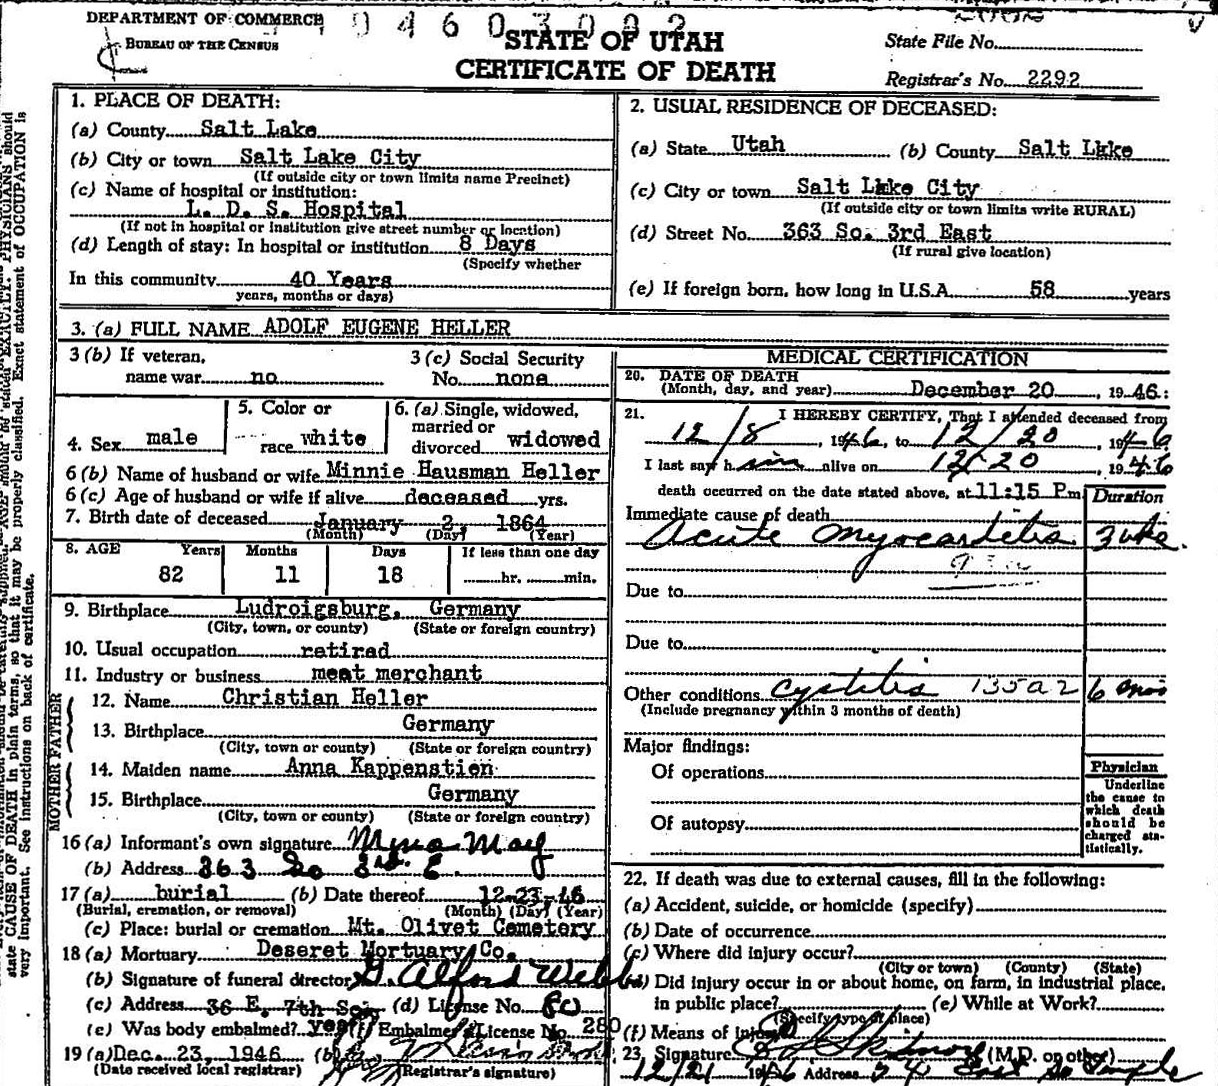 DEPARTMENT OF COMMERCE
BUREAU OF THE CENSUS
STATE OF UTAH
CERTIFICATE OF DEATH
State File No.
Registrar's No. 2292
1. PLACE OF DEATH:
(a) County Salt Lake
(b) City or town Salt Lake City
(If outside city or town limits name Precinct)
(c) Name of hospital or institution:
L. D. S. Hospital
(If not in hospital or institution give street number or location)
(d) Length of stay: In hospital or institution 8 Days
(Specify whether
In this community 40 Years
years, months or days)
2. USUAL RESIDENCE OF DECEASED:
(a) State Utah (b) County Salt Lake
(c) City or town Salt Lake City
(If outside city or town limits write RURAL)
(d) Street No. 363 So. 3rd East
(If rural give location)
(e) If foreign born, how long in U.S.A. 58 years
3. (a) FULL NAME ADOLF EUGENE HELLER
3 (b) If veteran, name war no
3 (c) Social Security No. none
4. Sex male
5. Color or race white
6. (a) Single, widowed, married or divorced widowed
6 (b) Name of husband or wife Minnie Hausman Heller
6 (c) Age of husband or wife if alive deceased yrs.
7. Birth date of deceased January 2, 1864
(Month) (Day) (Year)
8. AGE Years Months Days If less than one day
82 11 18 hr. min.
9. Birthplace Ludroigsburg, Germany
(City, town, or county) (State or foreign country)
10. Usual occupation retired
11. Industry or business meat merchant
FATHER
12. Name Christian Heller
13. Birthplace Germany
(City, town or county) (State or foreign country)
MOTHER
14. Maiden name Anna Kappenstien
15. Birthplace Germany
(City, town or county) (State or foreign country)
16 (a) Informant's own signature Myra May
(b) Address 363 So 3rd. E.
17 (a) burial (b) Date thereof 12-23-46
(Burial, cremation, or removal) (Month) (Day) (Year)
(c) Place: burial or cremation Mt. Olivet Cemetery
18 (a) Mortuary Deseret Mortuary Co.
(b) Signature of funeral director D. Alford Webb
(c) Address 36 E. 7th So. (d) License No. 80
(e) Was body embalmed? yes (f) Embalmer's License No. 280
19 (a) Dec. 23, 1946 (b)
(Date received local registrar) (Registrar's signature)
MEDICAL CERTIFICATION
20. DATE OF DEATH
(Month, day, and year) December 20, 1946:
21. I HEREBY CERTIFY, That I attended deceased from
12/8, 1946, to 12/20, 1946
I last saw h im alive on 12/20, 1946
death occurred on the date stated above, at 11:15 P.m.
Duration
Immediate cause of death
Acute myocarditis 3 wks.
Due to
Due to
Other conditions cystitis 135a2 6 mos
(Include pregnancy within 3 months of death)
Major findings:
Of operations
Of autopsy
Physician
Underline
the cause to
which death
should be
charged sta-
tistically.
22. If death was due to external causes, fill in the following:
(a) Accident, suicide, or homicide (specify)
(b) Date of occurrence
(c) Where did injury occur?
(City or town) (County) (State)
(d) Did injury occur in or about home, on farm, in industrial place,
in public place? (e) While at Work?
(Specify type of place)
(f) Means of injury
23. Signature (M.D. or other)
12/21 1946 Address 54 East So Temple
state CAUSE OF DEATH in plain terms, so that it may be properly classified. Exact statement of OCCUPATION is
very important. See instructions on back of certificate.